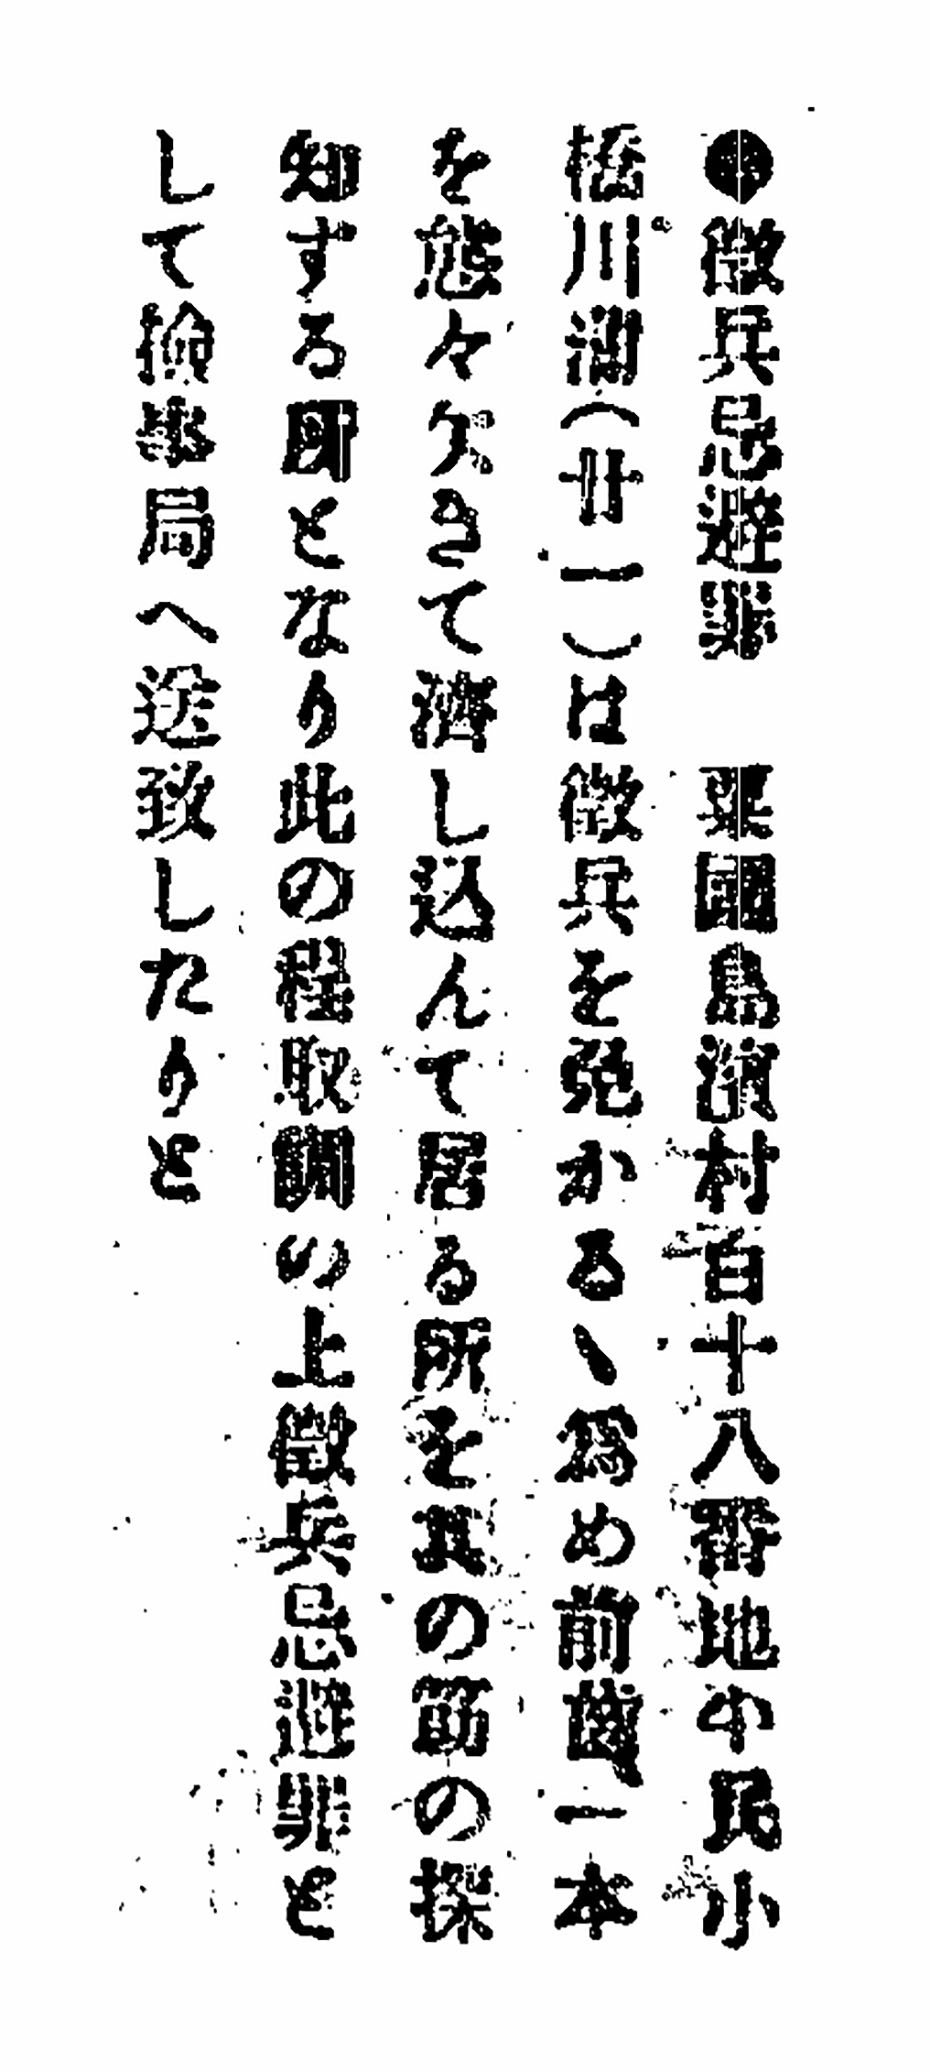 ●徴兵忌避罪　粟國島濱村百十八番地平民小
橋川蒲(廿一)は徴兵を免かるゝ爲め前歯一本
を態々欠きて濟し込んて居る所を其の筋の探
知する所となり此の程取調の上徴兵忌避罪と
して検事局へ送致したりと